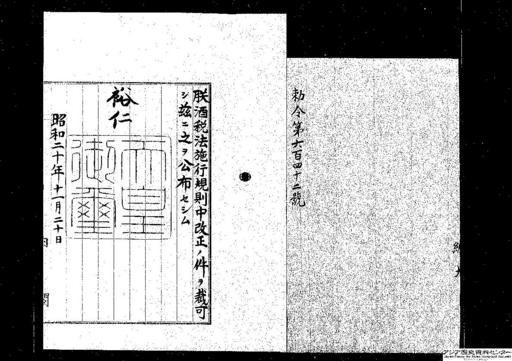 勅令第六百四十二號
朕酒税法施行規則中改正ノ件ヲ裁可
シ茲ニ之ヲ公布セシム
裕仁
天皇
御璽
昭和二十年十一月二十日
内閣
アジア歴史資料センター